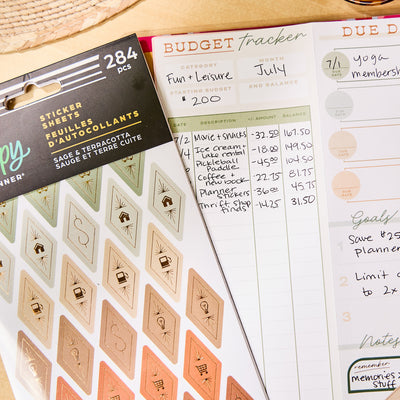 284
pcs
STICKER
SHEETS
FEUILLES
D'AUTOCOLLANTS
SAGE & TERRACOTTA
SAUGE ET TERRE CUITE
PLANNER
BUDGET tracker
CATEGORY
Fun + Leisure
MONTH
July
STARTING BUDGET
$200
END BALANCE
DATE DESCRIPTION +/- AMOUNT BALANCE
7/2 Movie + snacks -32.50 167.50
Ice cream +
lake rental -18.00 149.50
Pickleball
Paddle -45.00 104.50
Coffee +
new book -22.75 81.75
Planner
stickers -36.00 45.75
Thrift shop
finds -14.25 31.50
DUE
7/1
DUE
DATE
yoga
membersh
DUE
DATE
DUE
DATE
DUE
DATE
Goals
1
Save $25
planner
2
Limit
to 2x
3
Notes
remember
memories >
stuff